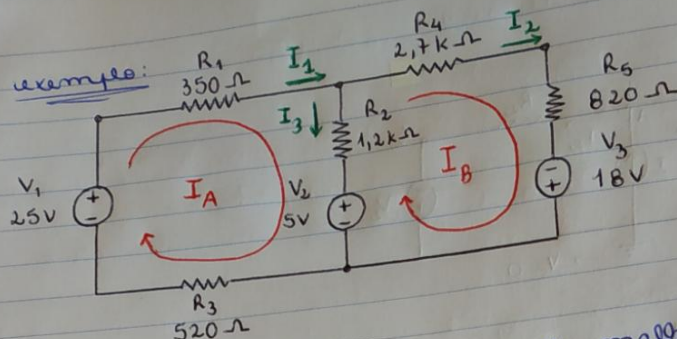 exemplo:
R1
350 Ω
I1
R4
2,7 k Ω
I2
I3
R2
1,2k Ω
R5
820 Ω
V1
25V
+
-
IA
V2
5V
+
-
IB
V3
18V
-
+
R3
520 Ω